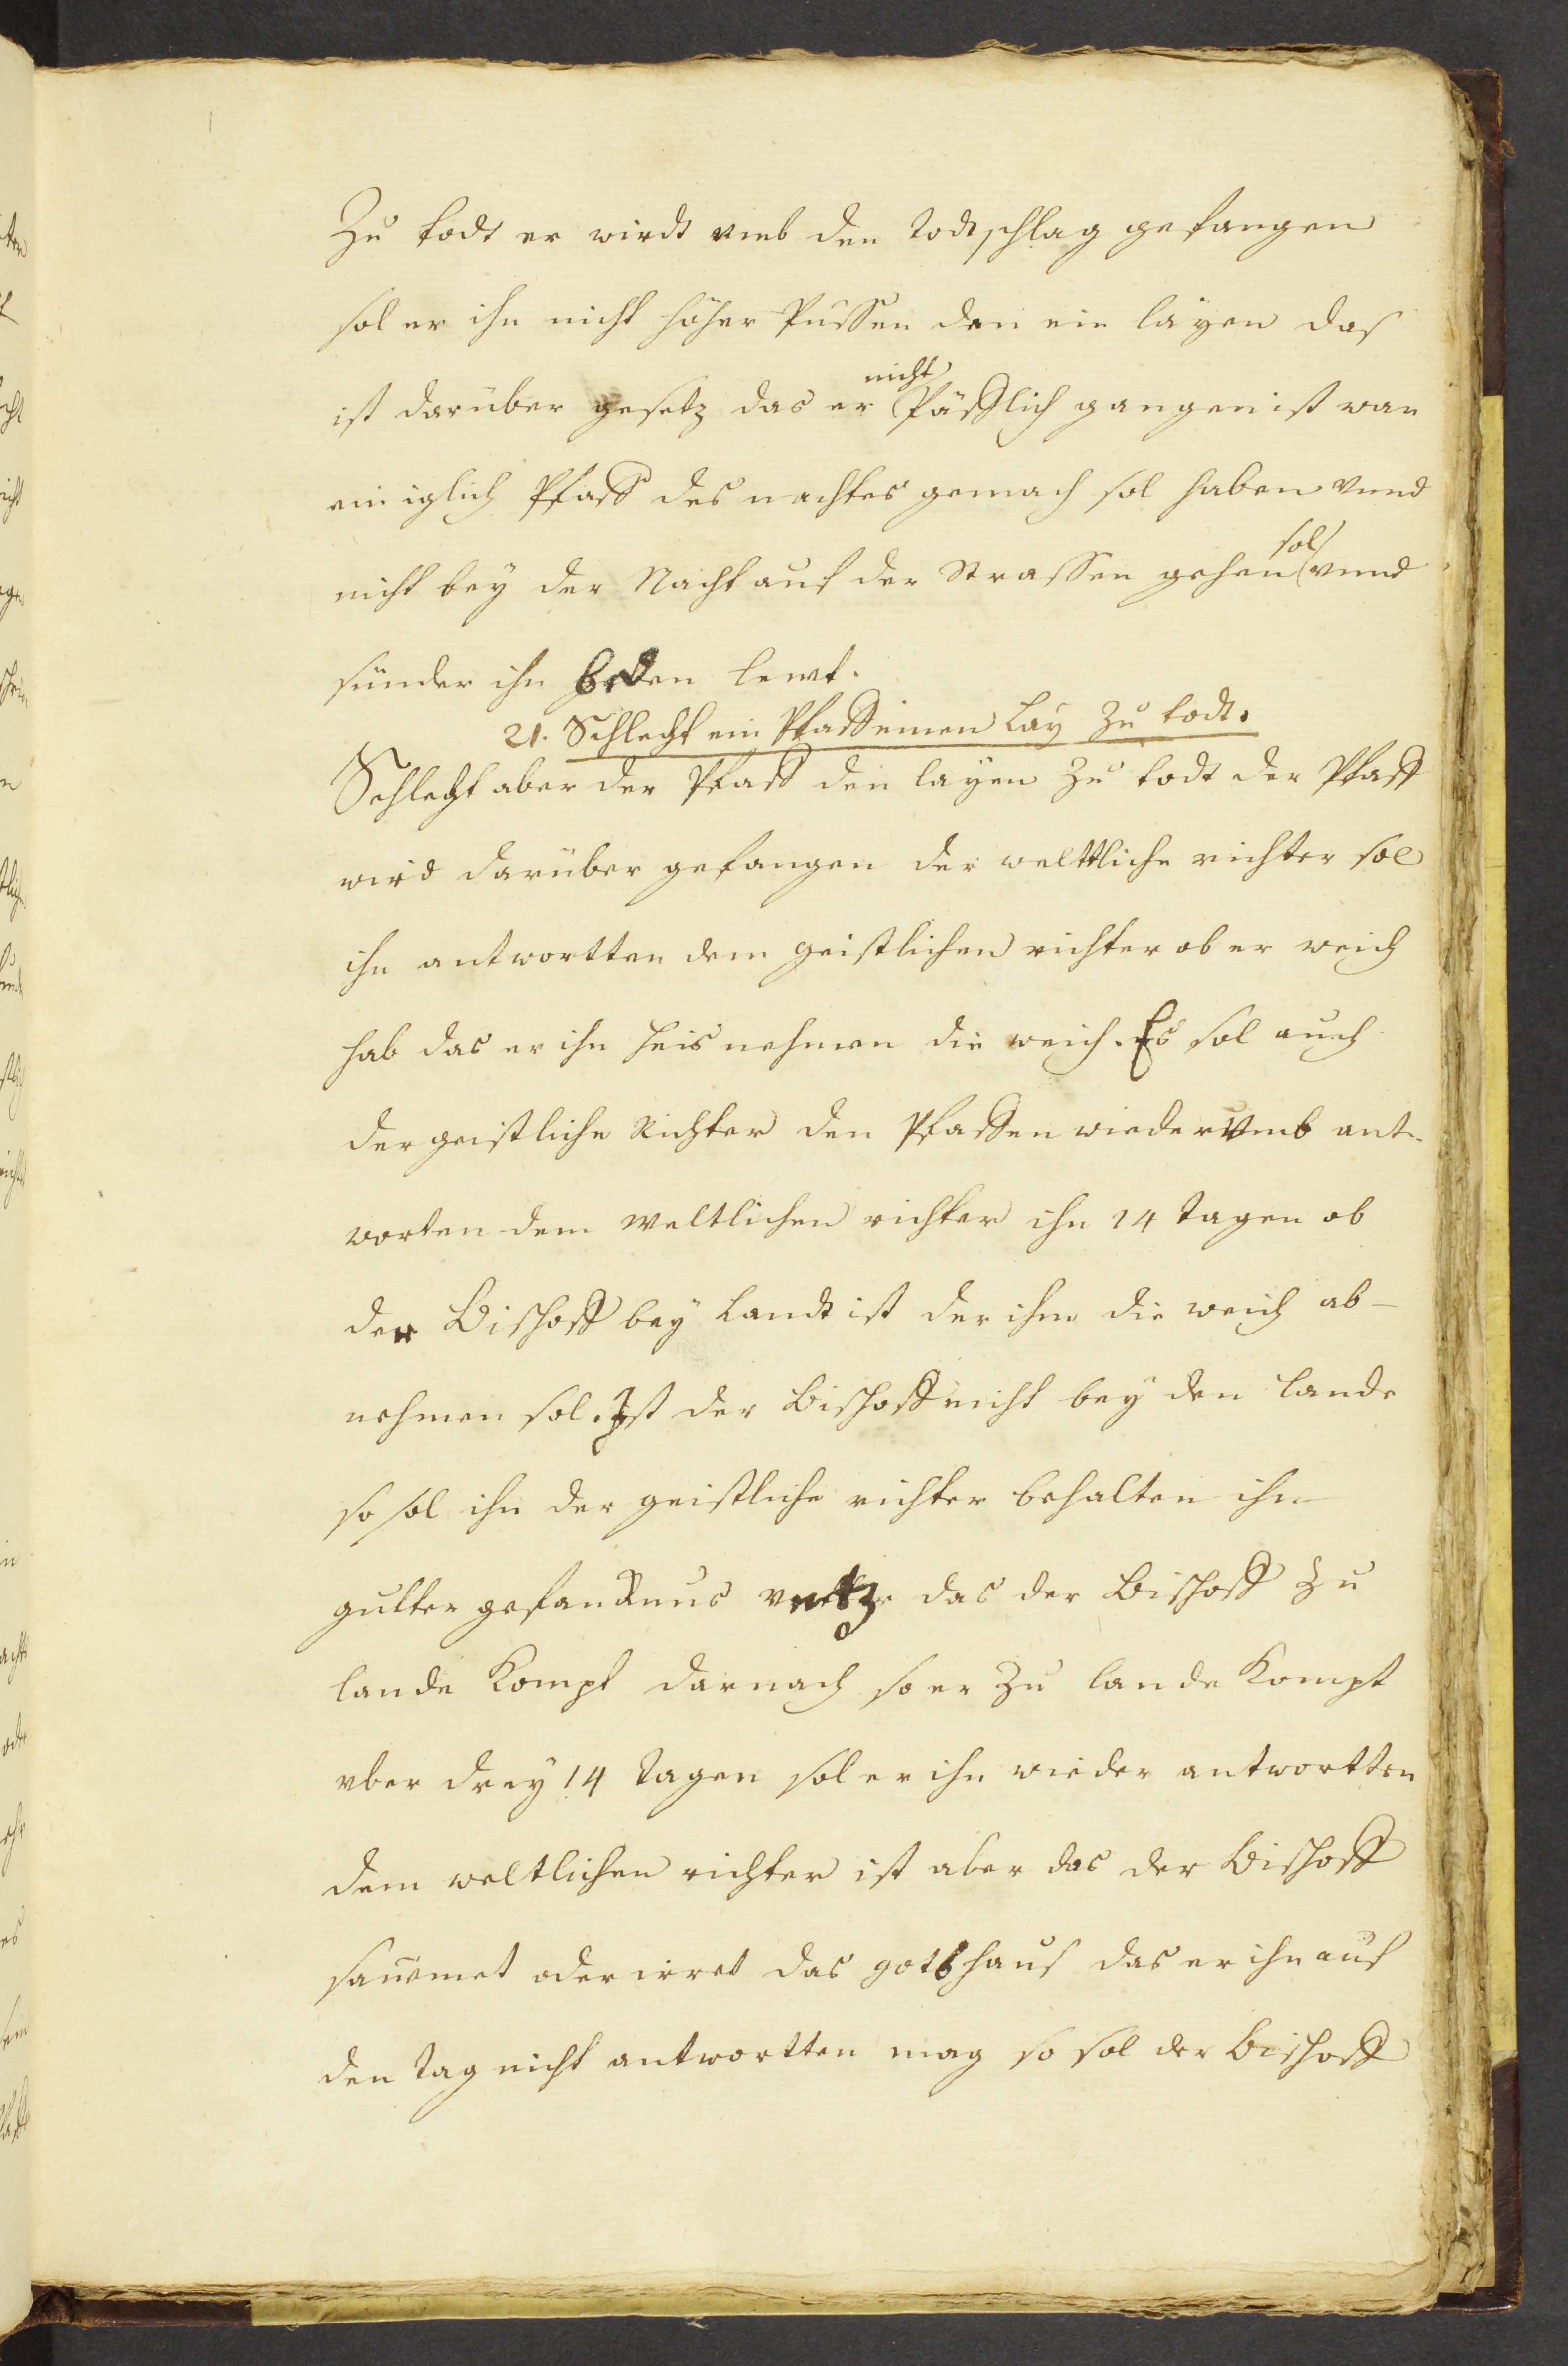 Zu todt er wirdt vmb den todtschlag gefangen
sol er ihn nicht höher Pussen den ein layen das
ist darüber gesetz das er nicht Päfflich gangen ist wan
ein iglich Pfaff des nachtes gemach sol haben vnnd
nicht bey der Nacht auf der Strassen gehen sol vnnd
sünder ihn lewt.
21. Schlecht ein Pfaff einen Lay zu todt.
Schlecht aber der Pfaff den layen zu todt der Pfaff
wird darüber gefangen der welttliche richter sol
ihn antwortten dem geistlichen richter ob er weich
hab das er ihn heis nehmen die weich. Es sol auch
der geistliche Richter den Pfaffen wiederumb ant-
worten dem weltlichen richter ihn 14 tagen ob
der Bischoff bey Landt ist der ihm die weich ab-
nehmen sol. Ist der Bischoff nicht bey den lande
so sol ihn der geistliche richter behalten ihn
gutter gefancknus vntz das der Bischoff zu
lande kompt darnach so er zu lande kompt
vber drey 14 tagen sol er ihn wieder antwortten
dem weltlichen richter ist aber das der Bischoff
saumet oder irret das gottshaus das er ihn auf
den tag nicht antwortten mag so sol der Bischoff